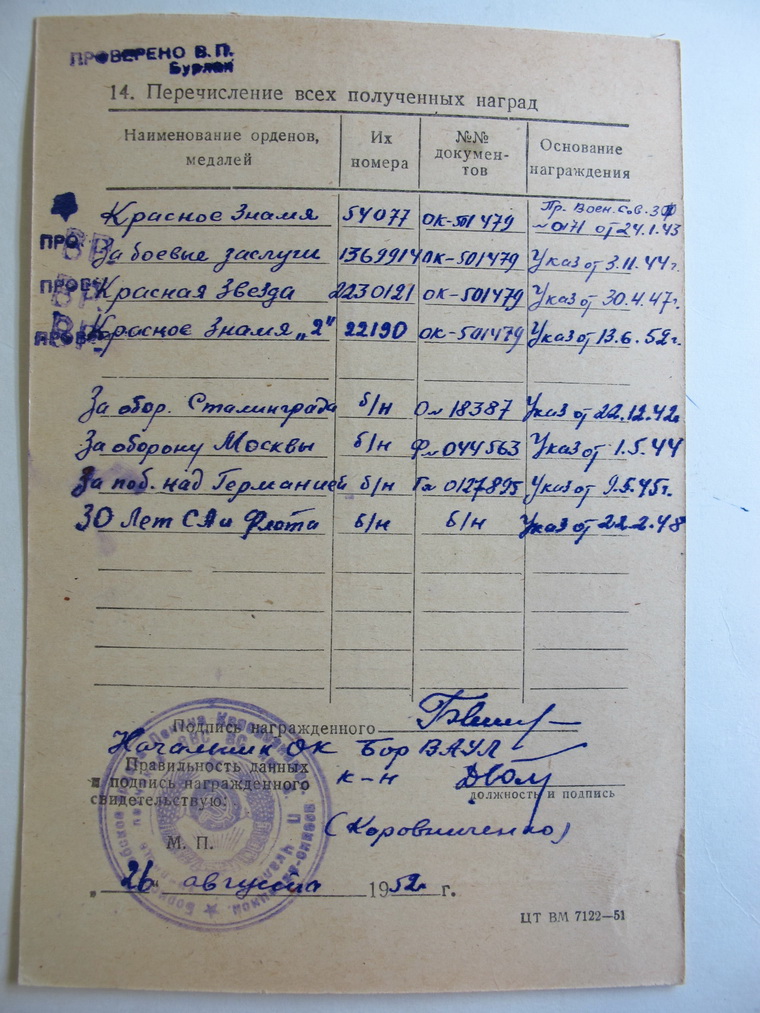 ПРОВЕРЕНО В.П.
Бурлак
14. Перечисление всех полученных наград
Наименование орденов, медалей | Их номера | №№ документов | Основание награждения
Красное Знамя 54077 ОК-501479 Пр. Воен. Сов. от 24.1.43
За боевые заслуги 1369914 ОК-501479 Указ от 3.11.44г.
Красная Звезда 2230121 ОК-501479 Указ от 30.4.47г.
Красное Знамя „2" 22190 ОК-501479 Указ от 13.6.52г.
За обор. Сталинграда б/н О№ 18387 Указ от 22.12.42г
За оборону Москвы б/н Ф№044563 Указ от 1.5.44
За поб. над Германией б/н Г№ 0127895 Указ от 9.5.45г.
30 Лет СА и Флота б/н б/н Указ от 22.2.48
Подпись награжденного
Начальник ОК Бор ВАУЛ
Правильность данных
и подпись награжденного
свидетельствую:
к-н
должности и подпись
(Коровниченко)
М. П.
„26" августа 1952 г.
ЦТ ВМ 7122—51